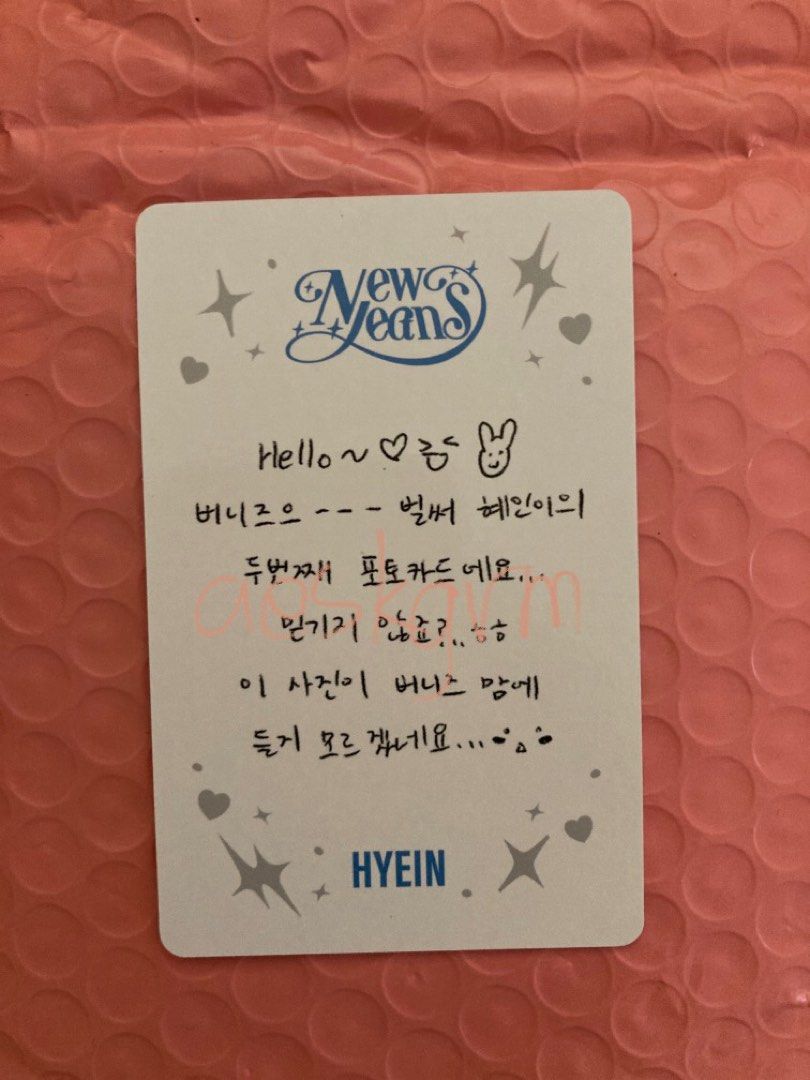 New Jeans
Hello~♡
버니즈으--- 벌써 혜인이의
두번째 포토카드네요...
믿기지 않죠?... ㅎㅎ
이 사진이 버니즈 맘에
들지 모르겠네요...
aostkgrm
HYEIN